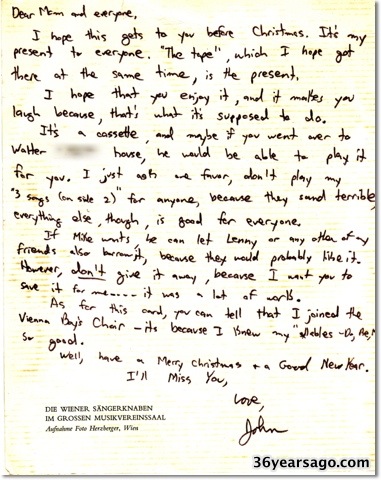 Dear Mom and everyone,
I hope this gets to you before Christmas. It's my
present to everyone. "The tape", which I hope got
there at the same time, is the present.
I hope that you enjoy it, and it makes you
laugh because, that's what it's supposed to do.
It's a cassette, and maybe if you went over to
Walter house, he would be able to play it
for you. I just ask one favor, don't play my
"3 songs (on side 2)" for anyone, because they sound terrible,
everything else, though, is good for everyone.
If Mike wants, he can let Lenny or any other of my
friends also borrow it, because they would probably like it.
However, don't give it away, because I want you to
save it for me...... it was a lot of work.
As for this card, you can tell that I joined the
Vienna Boy's Choir - its because I knew my "Do, Re, Mi
so good.
Well, have a Merry Christmas + a Good New Year.
I'll Miss You,
Love,
John
DIE WIENER SÄNGERKNABEN
IM GROSSEN MUSIKVEREINSSAAL
Aufnahme Foto Herzberger, Wien
36yearsago.com